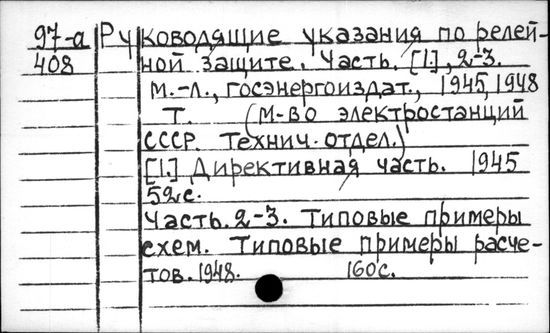 97-а Руководящие указания по релей-
408 ной защите. Часть. [1.], 2-3.
М.-Л., Госэнергоиздат., 1945, 1948
Т. (М-во электростанций
СССР. Технич. отдел.)
[1.] Директивная часть. 1945
52с.
Часть. 2-3. Типовые примеры
схем. Типовые примеры расче-
тов. 1948. 160с.